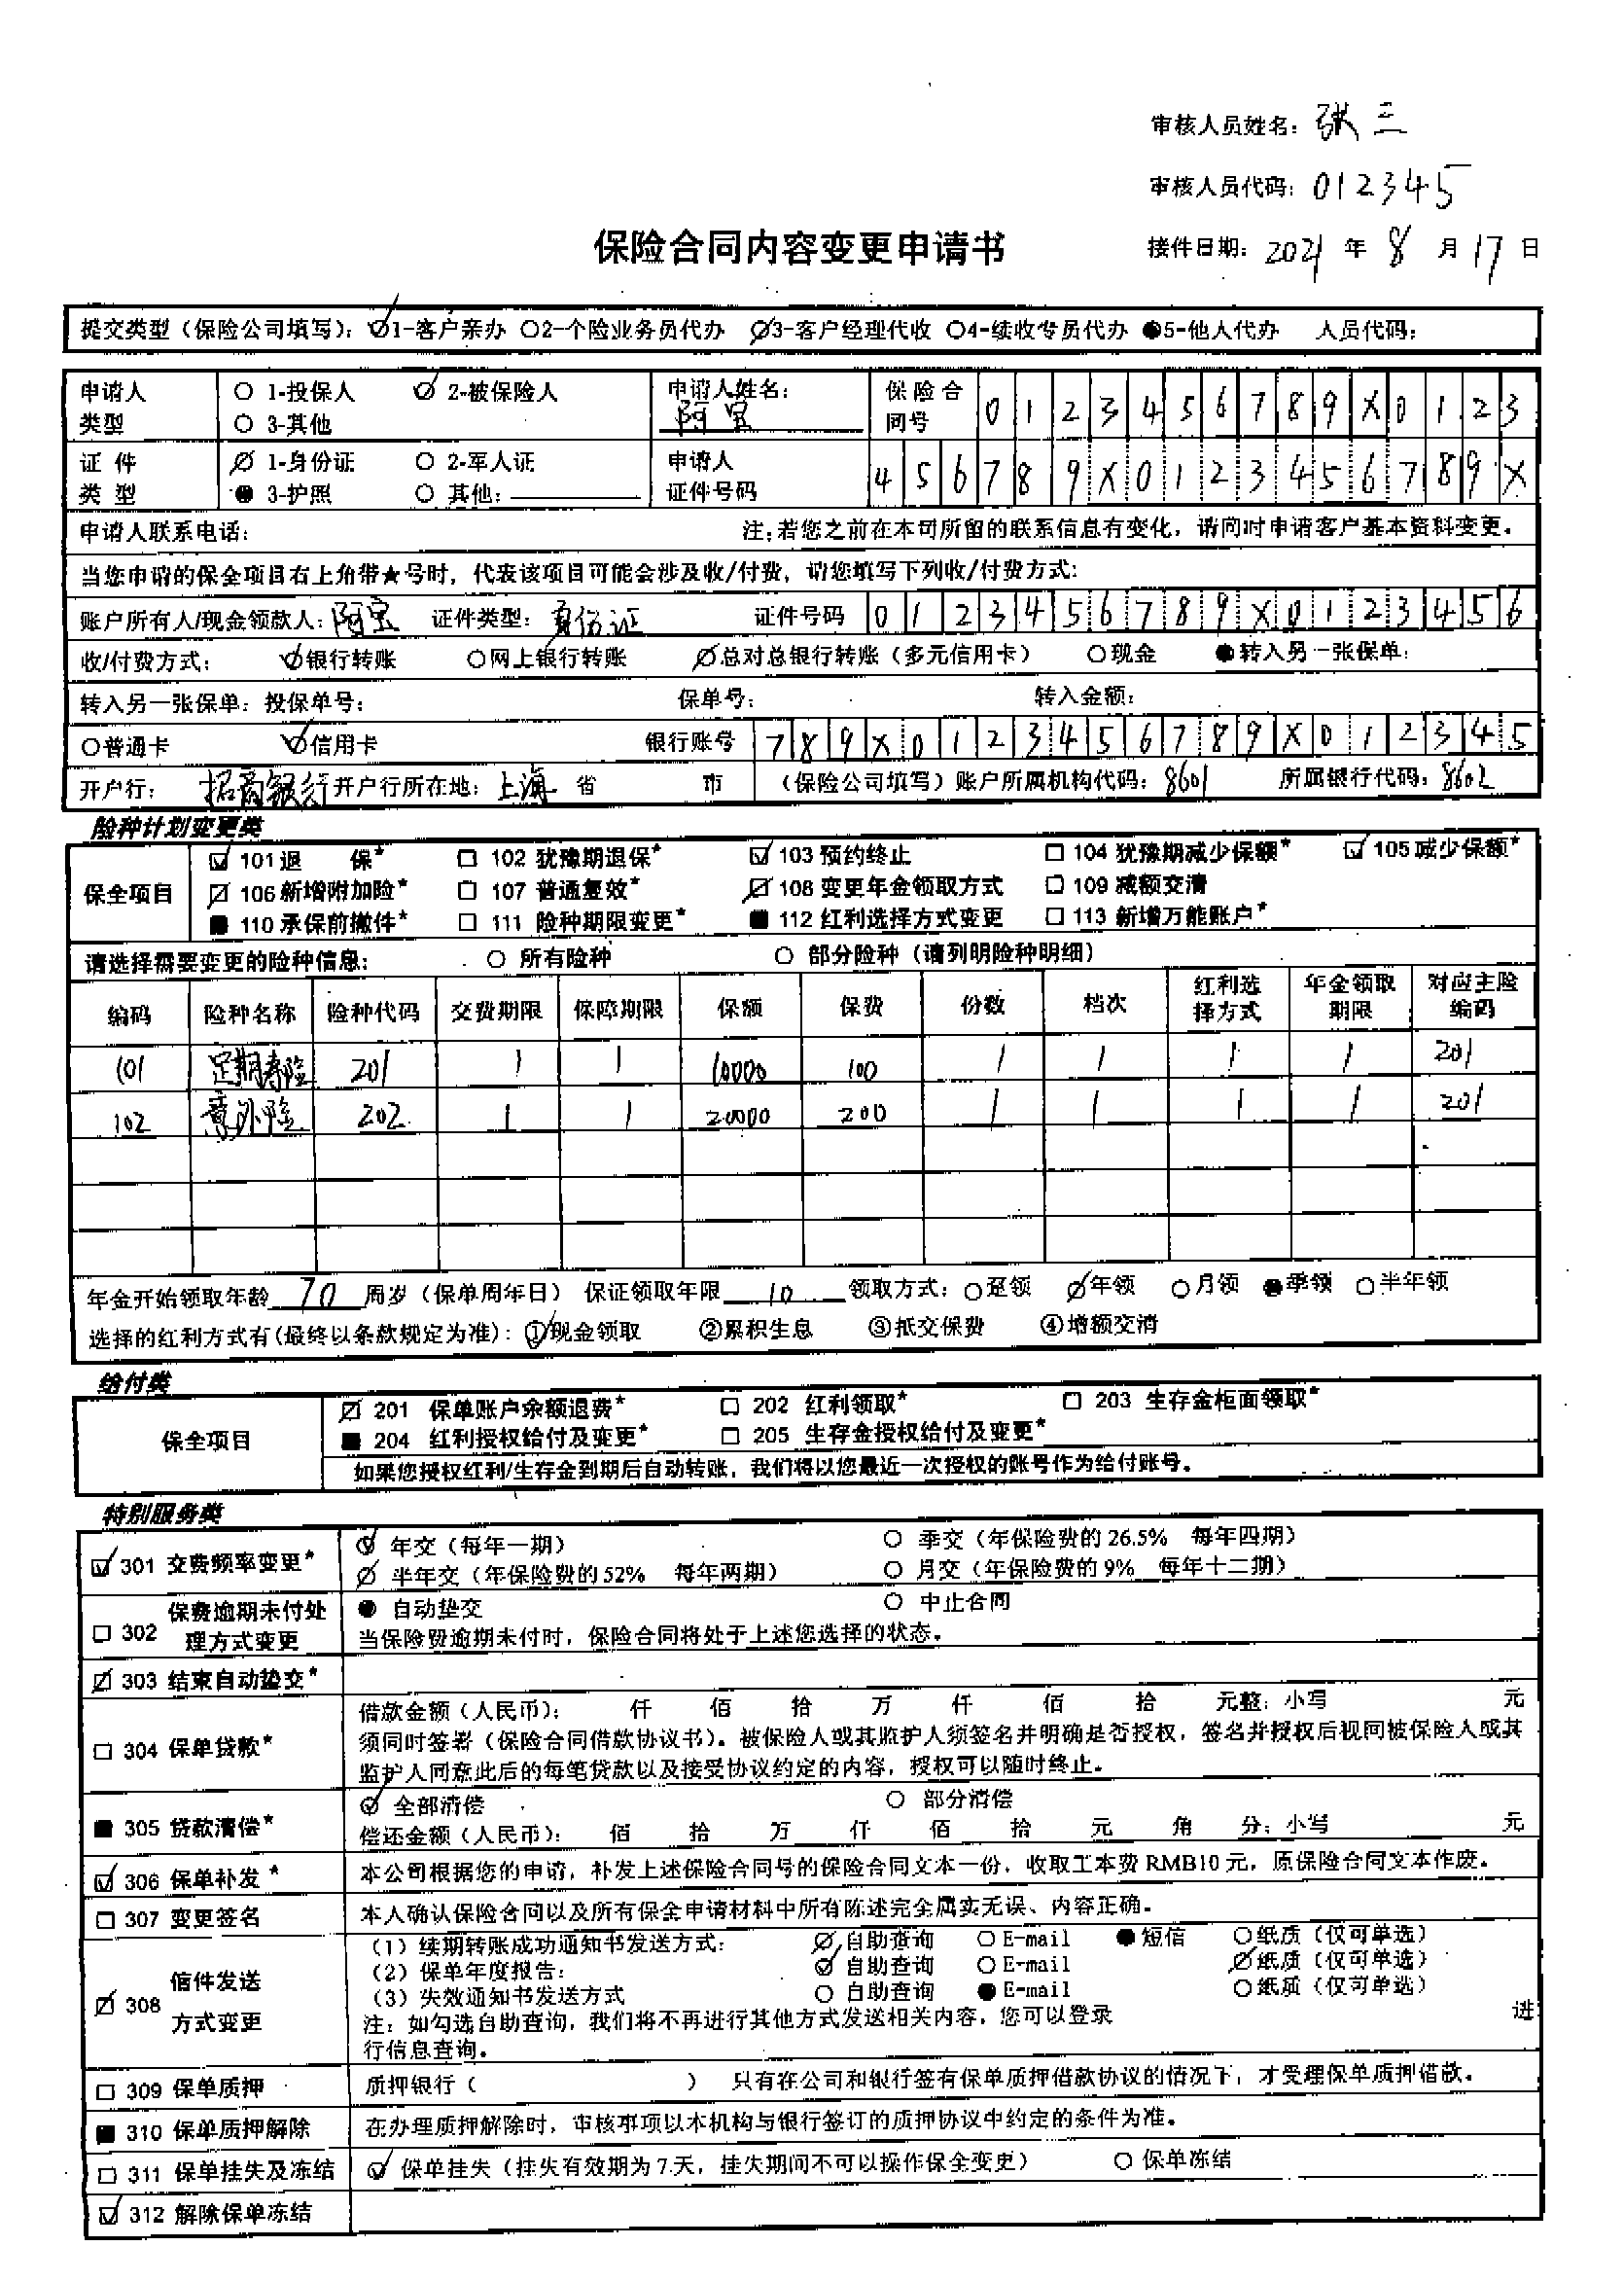 审核人员姓名：张三
审核人员代码：012345
保险合同内容变更申请书
接件日期：2021 年 8 月 17 日
提交类型（保险公司填写）：☑1-客户亲办 ○2-个险业务员代办 ☑3-客户经理代收 ○4-续收专员代办 ●5-他人代办 人员代码：
申请人类型 ○ 1-投保人 ☑ 2-被保险人 ○ 3-其他 申请人姓名：阿宝 保险合同号 0123456789X0123
证件类型 ☑ 1-身份证 ○ 2-军人证 ● 3-护照 ○ 其他： 申请人证件号码 456789X0123456789X
申请人联系电话： 注：若您之前在本司所留的联系信息有变化，请同时申请客户基本资料变更。
当您申请的保全项目右上角带★号时，代表该项目可能会涉及收/付费，请您填写下列收/付费方式：
账户所有人/现金领款人：阿宝 证件类型：身份证 证件号码 0123456789X0123456
收/付费方式： ☑银行转账 ○网上银行转账 ☑总对总银行转账（多元信用卡） ○现金 ●转入另一张保单：
转入另一张保单：投保单号： 保单号： 转入金额：
○普通卡 ☑信用卡 银行账号 789X0123456789X012345
开户行：招商银行 开户行所在地：上海 省 市 （保险公司填写）账户所属机构代码：8601 所属银行代码：8602
险种计划变更类
保全项目
☑ 101 退 保* □ 102 犹豫期退保* ☑ 103 预约终止 □ 104 犹豫期减少保额* ☑ 105 减少保额*
☑ 106 新增附加险* □ 107 普通复效* ☑ 108 变更年金领取方式 □ 109 减额交清
■ 110 承保前撤件* □ 111 险种期限变更* ■ 112 红利选择方式变更 □ 113 新增万能账户*
请选择需要变更的险种信息： ○ 所有险种 ○ 部分险种（请列明险种明细）
编码 险种名称 险种代码 交费期限 保障期限 保额 保费 份数 档次 红利选择方式 年金领取期限 对应主险编码
101 定期寿险 201 1 1 10000 100 1 1 1 1 201
102 意外险 202 1 1 20000 200 1 1 1 1 201
年金开始领取年龄 70 周岁（保单周年日） 保证领取年限 10 领取方式：○趸领 ☑年领 ○月领 ●季领 ○半年领
选择的红利方式有(最终以条款规定为准)：①现金领取 ②累积生息 ③抵交保费 ④增额交清
给付类
保全项目
☑ 201 保单账户余额退费* □ 202 红利领取* □ 203 生存金柜面领取*
■ 204 红利授权给付及变更* □ 205 生存金授权给付及变更*
如果您授权红利/生存金到期后自动转账，我们将以您最近一次授权的账号作为给付账号。
特别服务类
☑ 301 交费频率变更* ☑ 年交（每年一期） ○ 季交（年保险费的 26.5% 每年四期）
☑ 半年交（年保险费的 52% 每年两期） ○ 月交（年保险费的 9% 每年十二期）
□ 302 保费逾期未付处理方式变更 ● 自动垫交 ○ 中止合同
当保险费逾期未付时，保险合同将处于上述您选择的状态。
☑ 303 结束自动垫交*
□ 304 保单贷款* 借款金额（人民币）： 仟 佰 拾 万 仟 佰 拾 元整；小写 元
须同时签署（保险合同借款协议书）。被保险人或其监护人须签名并明确是否授权，签名并授权后视同被保险人或其
监护人同意此后的每笔贷款以及接受协议约定的内容，授权可以随时终止。
■ 305 贷款清偿* ☑ 全部清偿 ○ 部分清偿
偿还金额（人民币）： 佰 拾 万 仟 佰 拾 元 角 分；小写 元
☑ 306 保单补发 * 本公司根据您的申请，补发上述保险合同号的保险合同文本一份，收取工本费 RMB10 元，原保险合同文本作废。
□ 307 变更签名 本人确认保险合同以及所有保全申请材料中所有陈述完全属实无误、内容正确。
☑ 308 信件发送方式变更
（1）续期转账成功通知书发送方式： ☑ 自助查询 ○ E-mail ● 短信 ○纸质（仅可单选）
（2）保单年度报告： ☑ 自助查询 ○ E-mail ☑纸质（仅可单选）
（3）失效通知书发送方式 ○ 自助查询 ● E-mail ○纸质（仅可单选）
注：如勾选自助查询，我们将不再进行其他方式发送相关内容，您可以登录 进
行信息查询。
□ 309 保单质押 质押银行（ ） 只有在公司和银行签有保单质押借款协议的情况下，才受理保单质押借款。
■ 310 保单质押解除 在办理质押解除时，审核事项以本机构与银行签订的质押协议中约定的条件为准。
□ 311 保单挂失及冻结 ☑ 保单挂失（挂失有效期为 7 天，挂失期间不可以操作保全变更） ○ 保单冻结
☑ 312 解除保单冻结